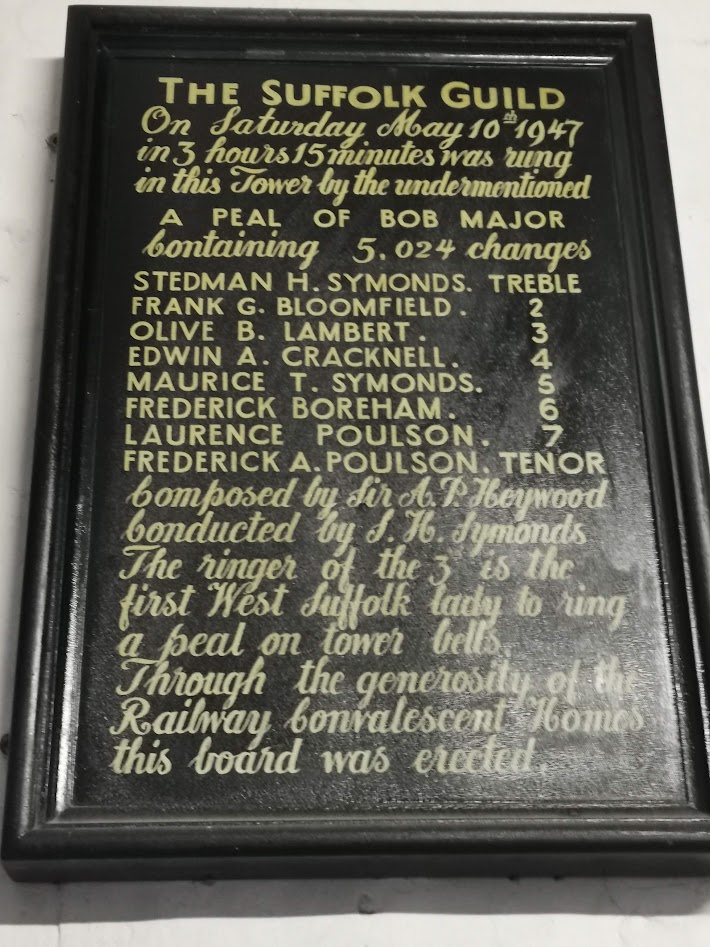 THE SUFFOLK GUILD
On Saturday May 10th 1947
in 3 hours 15 minutes was rung
in this Tower by the undermentioned
A PEAL OF BOB MAJOR
containing 5,024 changes
STEDMAN H. SYMONDS. TREBLE
FRANK G. BLOOMFIELD. 2
OLIVE B. LAMBERT. 3
EDWIN A. CRACKNELL. 4
MAURICE T. SYMONDS. 5
FREDERICK BOREHAM. 6
LAURENCE POULSON. 7
FREDERICK A. POULSON. TENOR
Composed by Sir A. P. Heywood
Conducted by S. H. Symonds
The ringer of the 3rd is the
first West Suffolk lady to ring
a peal on tower bells.
Through the generosity of the
Railway Convalescent Homes
this board was erected.